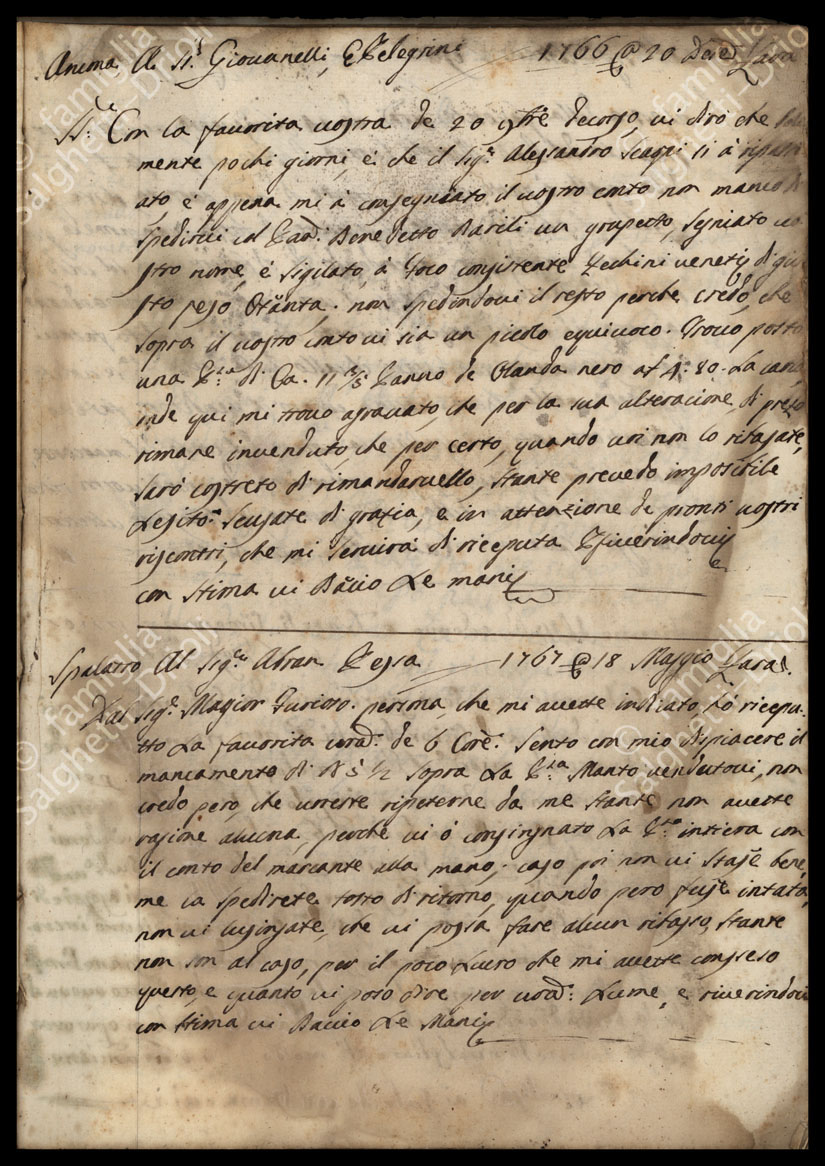 Ancona, Al SS.ri Giovanelli, e Pelegrini 1766 @ 20 Zara
Con la favorita vostra de 20 9bre decorso, vi dirò che
mente pochi giorni, è che il Sig.r Alessandro Scapri si à
ato, è appena mi à consegniato il vostro conto non manco di
spedirvi col Pad: Benedetto Barili un grupetto, segniato vo
stro nome, è sigilato, à Voco consistente Zechini veneti di giu
sto peso Otanta; non spedindovi il resto perche credo, che
sopra il vostro conto vi sia un picolo equivoco. Trovo posto
una P.za di Ca. 11 Panno de Olanda nero a 80. La
mi trovo agravato, che per la sua alteracione di prezo
rimane invenduto, che per certo, quando voi non lo rifasate,
sarò costreto di rimandarvello, stante prevedo impossibile
Scusate di grazia, e in attenzione de pronti vostri
riscontri, che mi servirà di riceputa
con stima vi Bacio Le mani
Spalatro Al Sig.r Abran Pessa 1767 @ 18 Maggio Zara
Dal Sig.r Magior Furioso. persona, che mi avette indicato, hò ricepu-
tto La favorita vrad: de 6 Core. Sento con mio dispiacere il
mancamento di B 5 1/2 sopra La P.za Manto vendutovi, non
credo però, che vorrete ripeterne da me stante non avette
ragione alcuna, perche vi ò consignato La P.za intiera con
il conto del marcante alla mano; caso poi non vi stasse bene,
me la spedirete tosto di ritorno, quando però fusse intata,
non vi lusingate, che vi possa fare alcun rifasso, stante
non son al caso, per il poco Lucro che mi avette conceso
questo, e quanto vi poso dire per vrad: Lume, e riverindovi
con stima vi Baccio Le Mani
© famiglia
Salghetti-Drioli
© famiglia
Salghetti-Drioli
© famiglia
Salghetti-Drioli
© famiglia
Salghetti-Drioli